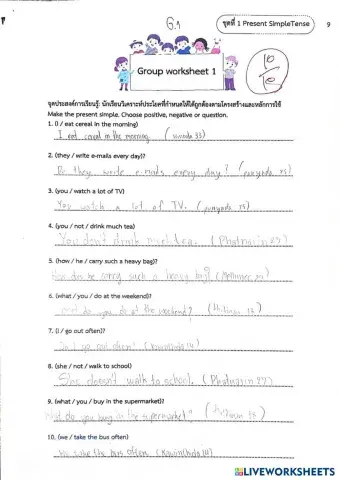 G.1
ชุดที่ 1 Present SimpleTense
9
10
10
Group worksheet 1
จุดประสงค์การเรียนรู้: นักเรียนวิเคราะห์ประโยคที่กำหนดให้ได้ถูกต้องตามโครงสร้างและหลักการใช้
Make the present simple. Choose positive, negative or question.
1. (I / eat cereal in the morning)
I eat cereal in the morning.
2. (they / write e-mails every day)?
Do they wrote e-mails every day?
3. (you / watch a lot of TV)
You watch a lot of TV.
4. (you / not / drink much tea)
You don't drink much tea. (Phatnarin 27)
5. (how / he / carry such a heavy bag)?
How does he carry such a heavy bag?
6. (what / you / do at the weekend)?
What do you do at the weekend?
7. (I / go out often)?
Do I go out often?
8. (she / not / walk to school)
She doesn't walk to school. (Phatnarin 27)
9. (what / you / buy in the supermarket)?
What do you buy in the supermarket?
10. (we / take the bus often)
We take the bus often.
LIVEWORKSHEETS